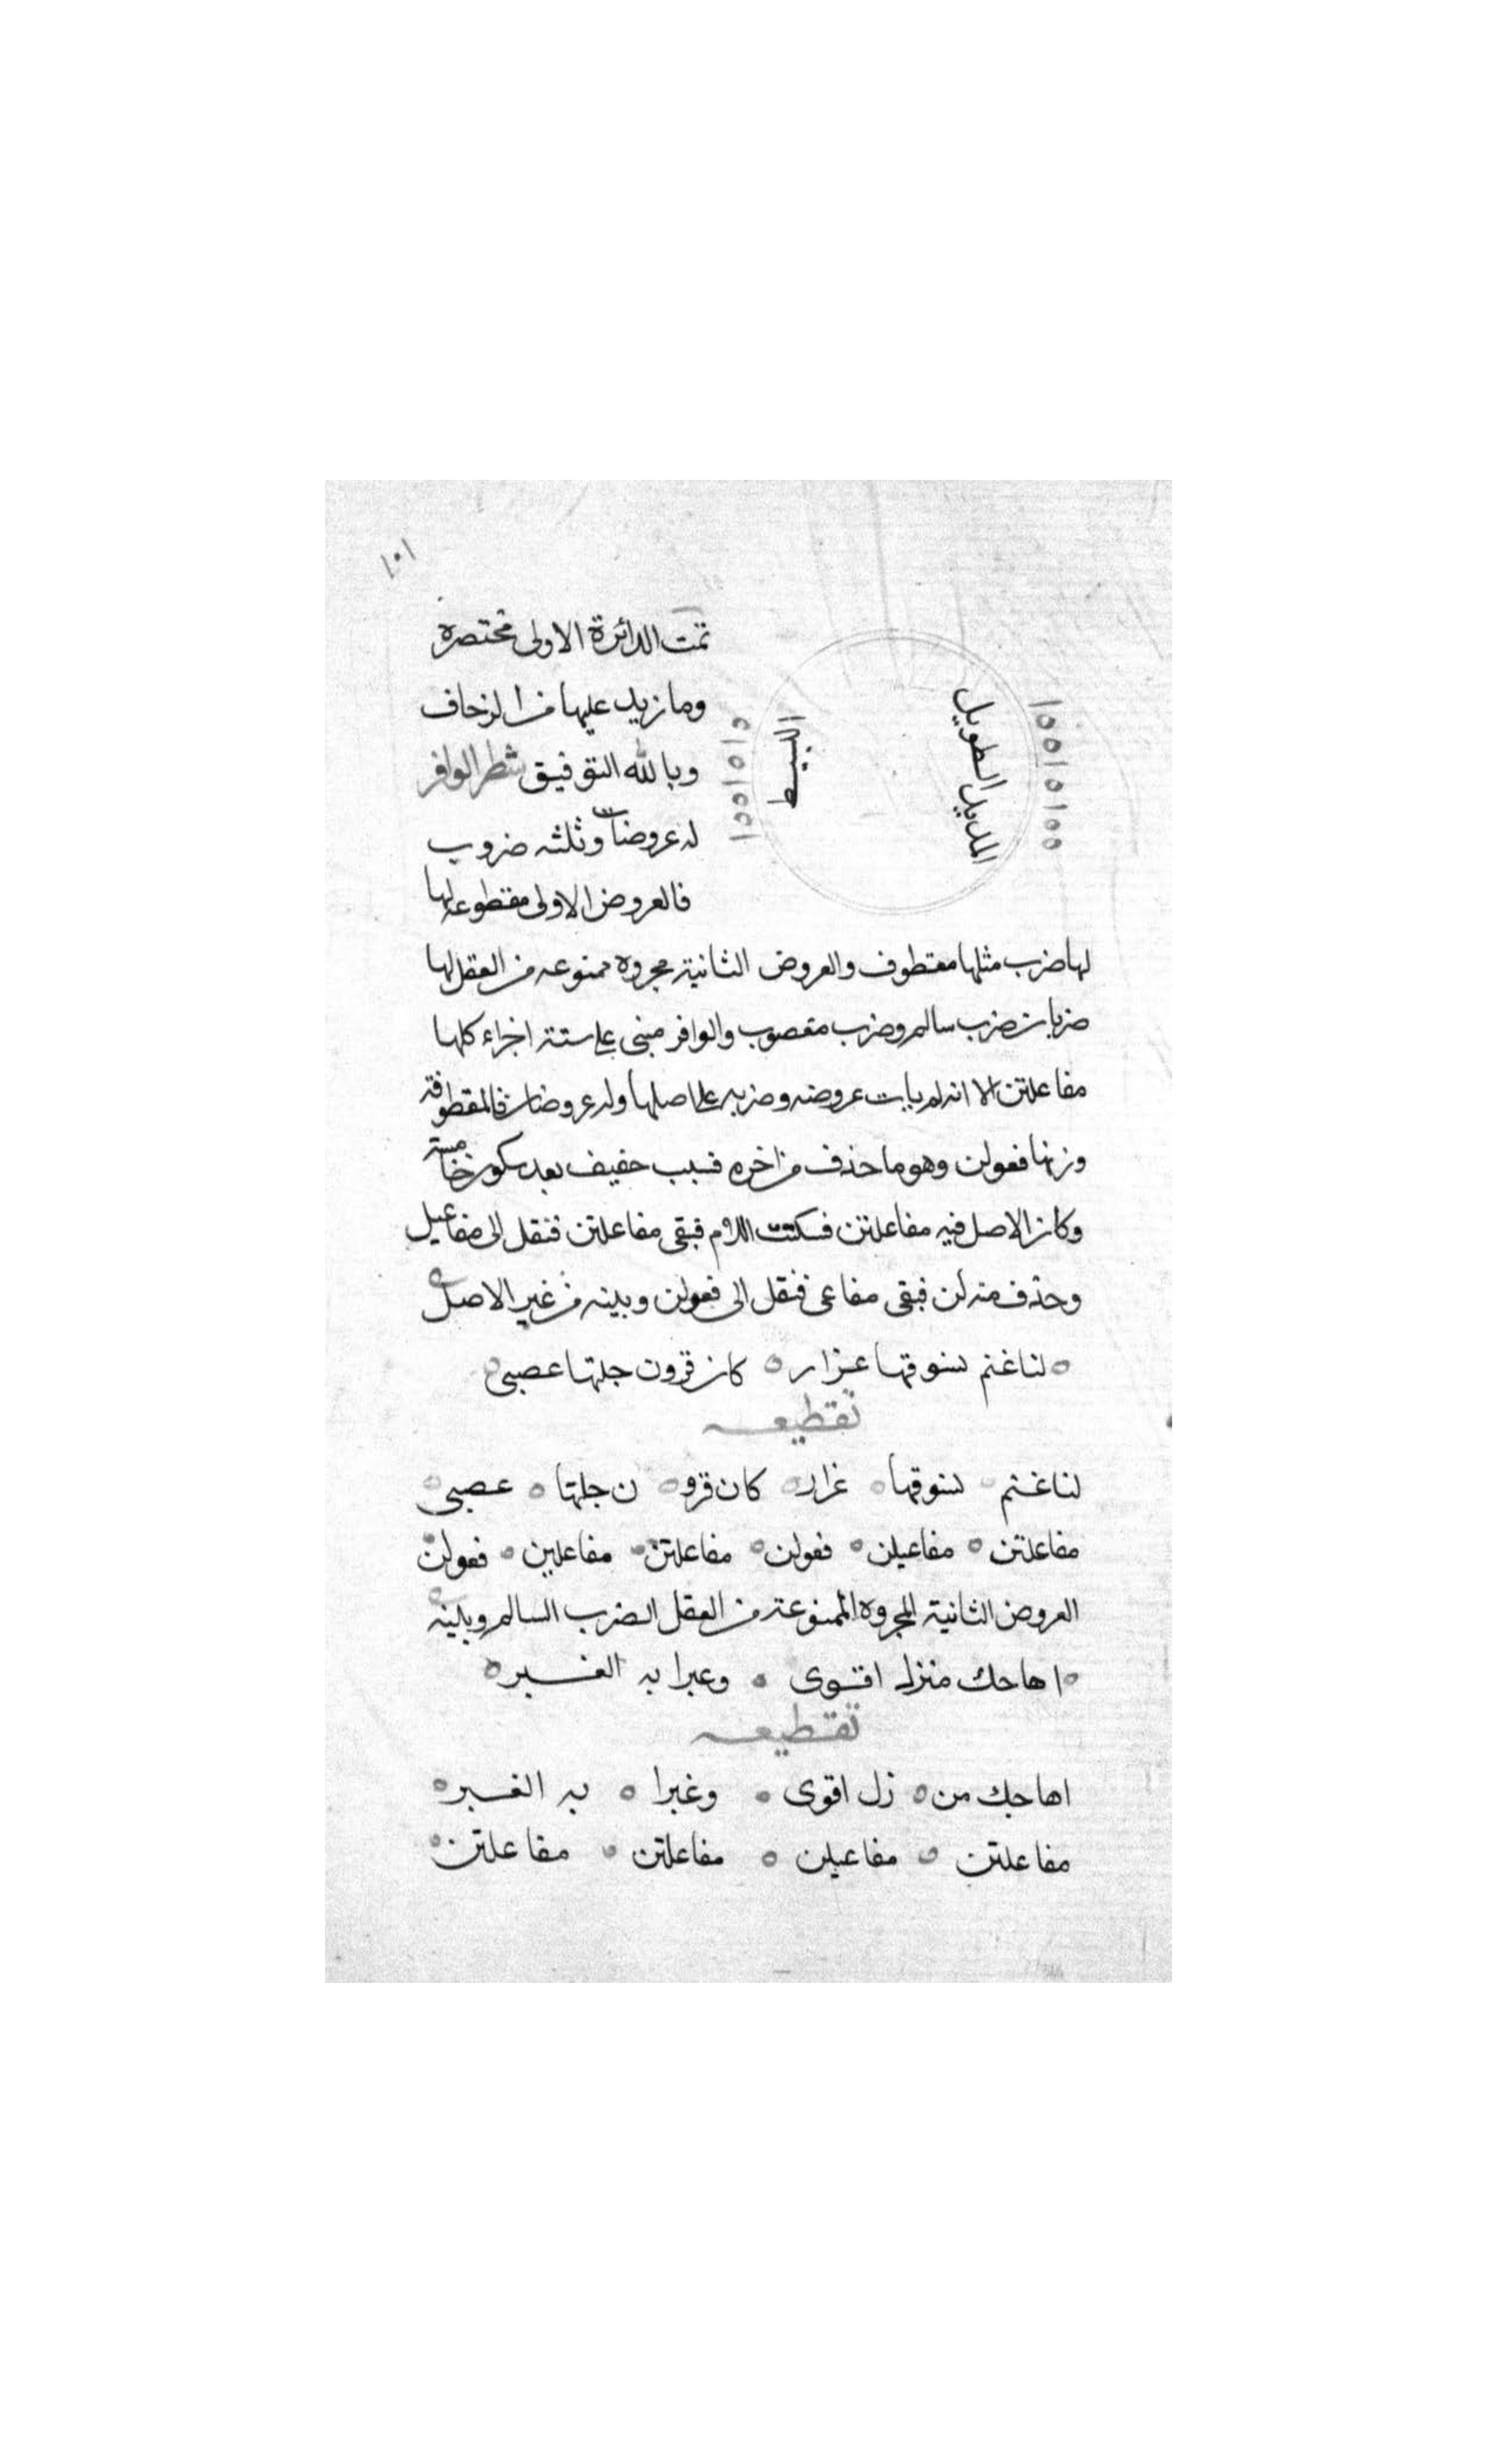 ١٠١
تمت الدائرة الاولى مختصره
وما زيد عليها من الزحاف
وبالله التوفيق شطر الوافر
له عروضات وثلثه ضروب
فالعروض الاولى مقطوعه لها
الطويل
المديد
البسيط
١٥٥١٥١٥٥
٥١٥١٥٥١
لها ضرب مثلها مقتطوف والعروض الثانية مجروه ممنوعه من العقل لها
ضربان ضرب سالم وضرب مقصوب والوافر مبنى على ستة اجزاء كلها
مفاعلتن الا انه لم يات عروضه وضربه على اصلها وله عروضان فالمقطوفة
وزنها فعولن وهو ما حذف من اخره فسبب خفيف بعد سكون خامسة
وكان الاصل فيه مفاعلتن فسكنت اللام فبقى مفاعلتن فنقل الى مفاعيل
وحذف منه لن فبقى مفاعى فنقل الى فعولن وبينه من غير الاصل
لنا غنم نسوقها عزار ٥ كان قرون جلتها عصبى
تقطيعه
لنا غنم ٥ نسوقها ٥ غرار ٥ كان قرو ٥ ن جلتها ٥ عصبى
مفاعلتن ٥ مفاعيلن ٥ فعولن ٥ مفاعلتن ٥ مفاعلين ٥ فعولن
العروض الثانية المجروه الممنوعة من العقل الضرب السالم وبينه
اهاحك منزل اقوى ٥ وعبرا به الغبره
تقطيعه
اهاجك من ٥ زل اقوى ٥ وغبرا ٥ به الغبره
مفاعلتن ٥ مفاعيلن ٥ مفاعلتن ٥ مفاعلتن